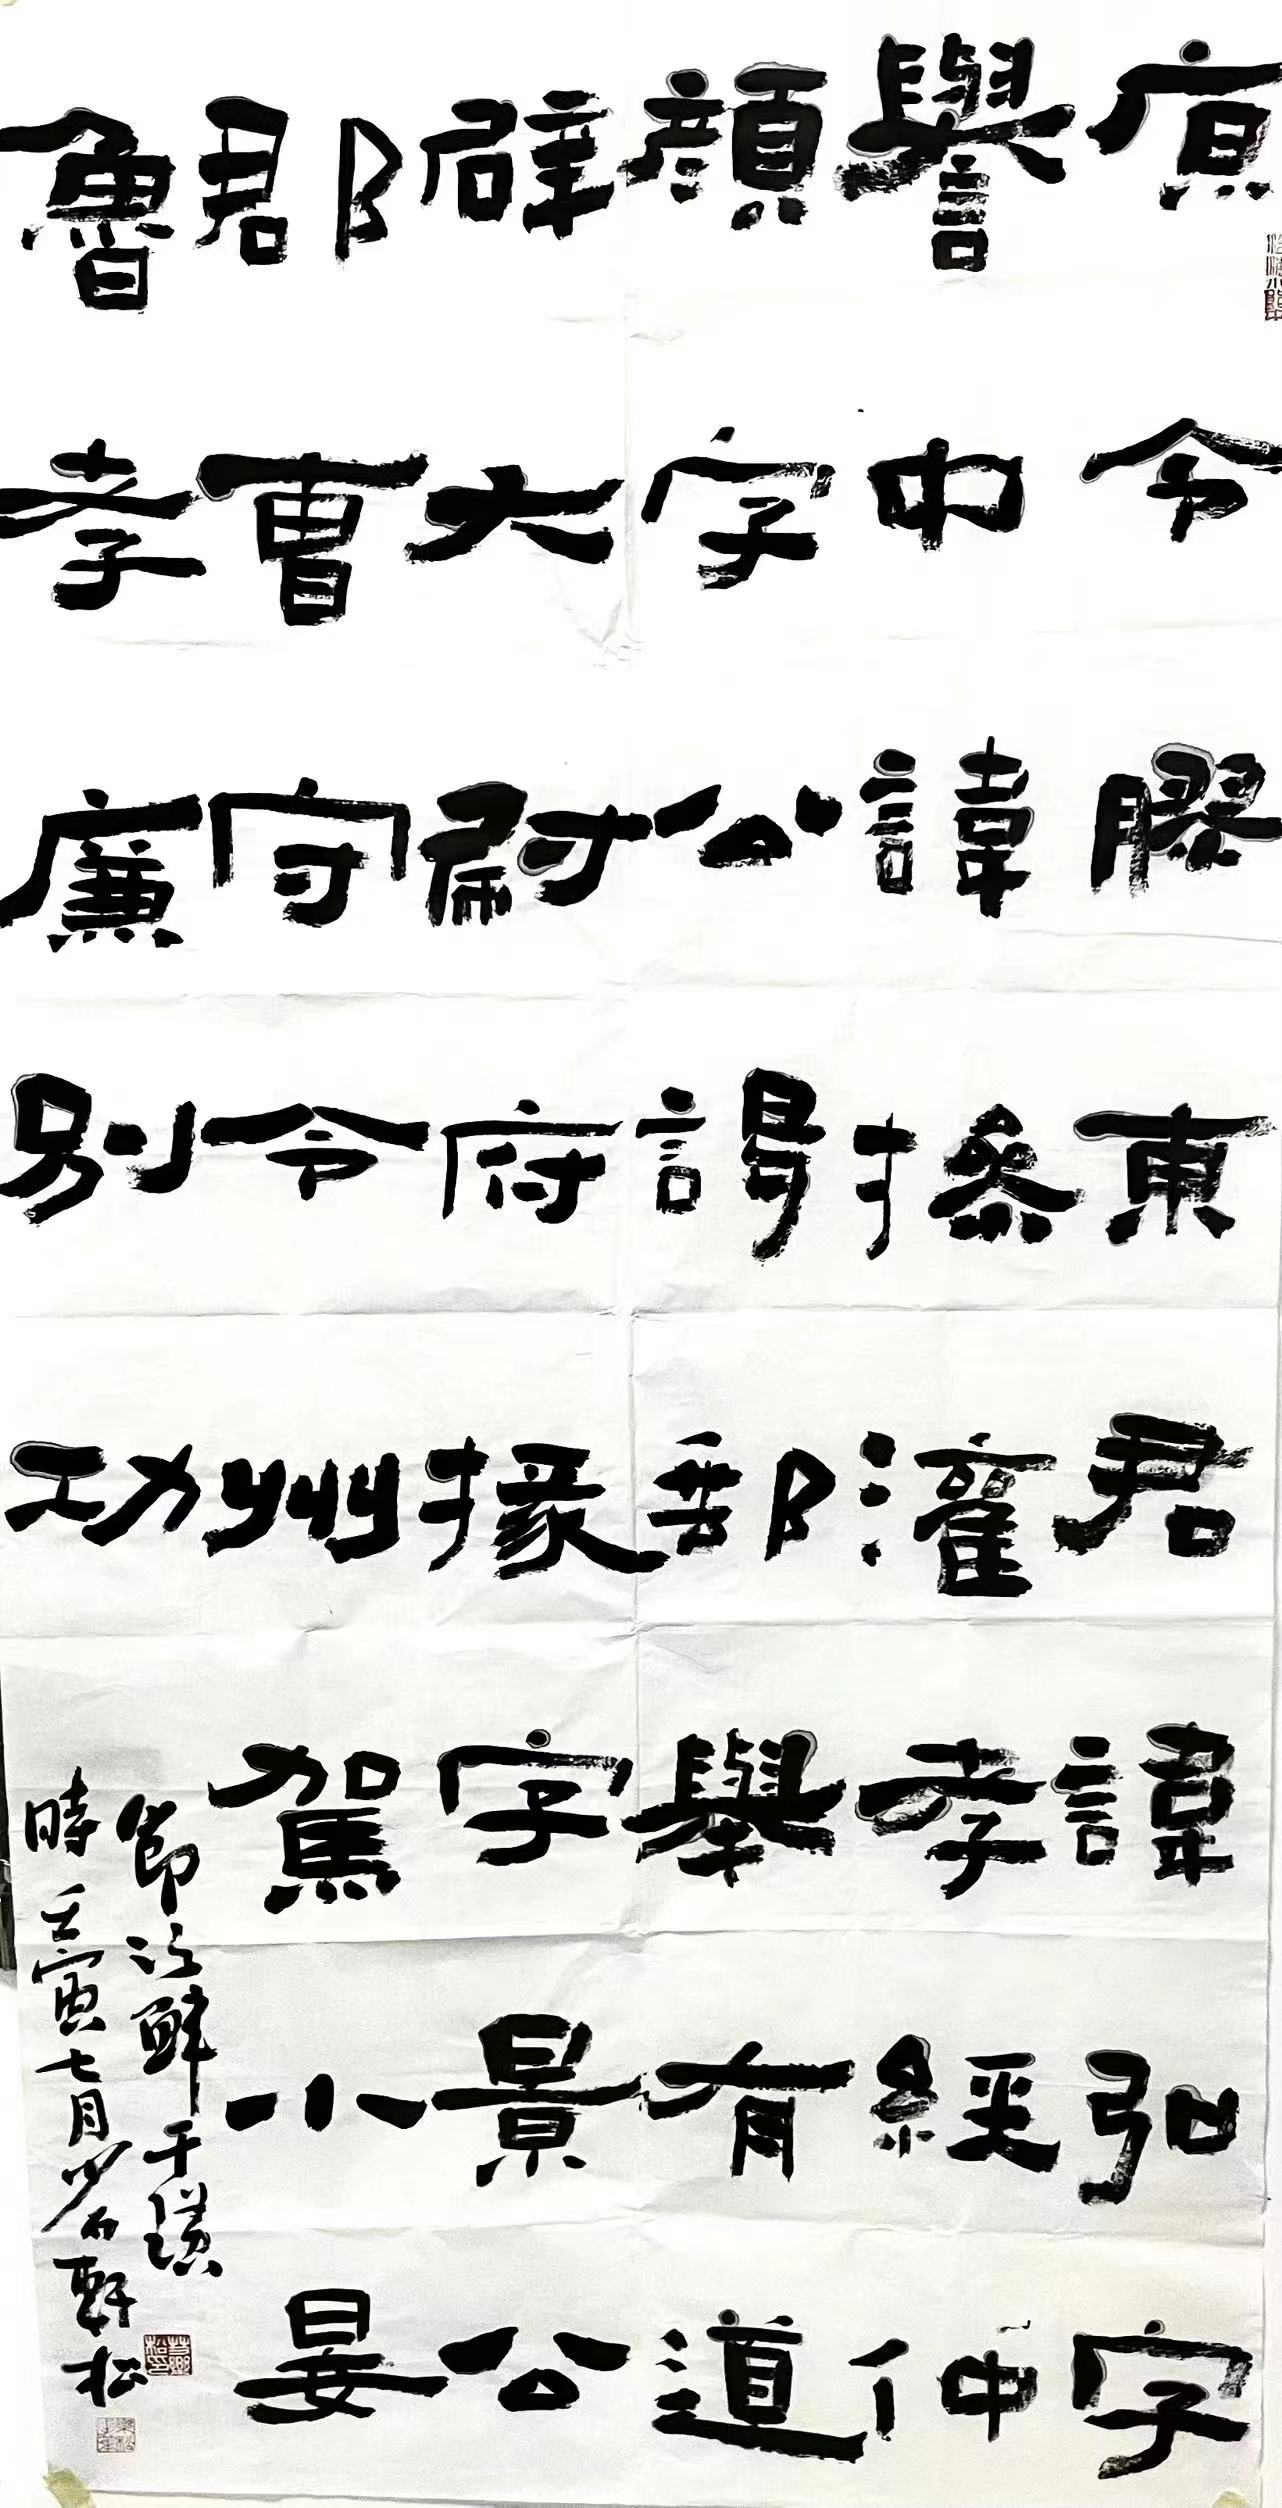 令膠東君諱弘字
譽中諱摻灌孝經仲
顏字公謁部舉有道
辟大尉府掾字景公
郡曹守令州駕小晏
魯孝廉別功
節臨鮮于璜
時壬寅七月石軒松